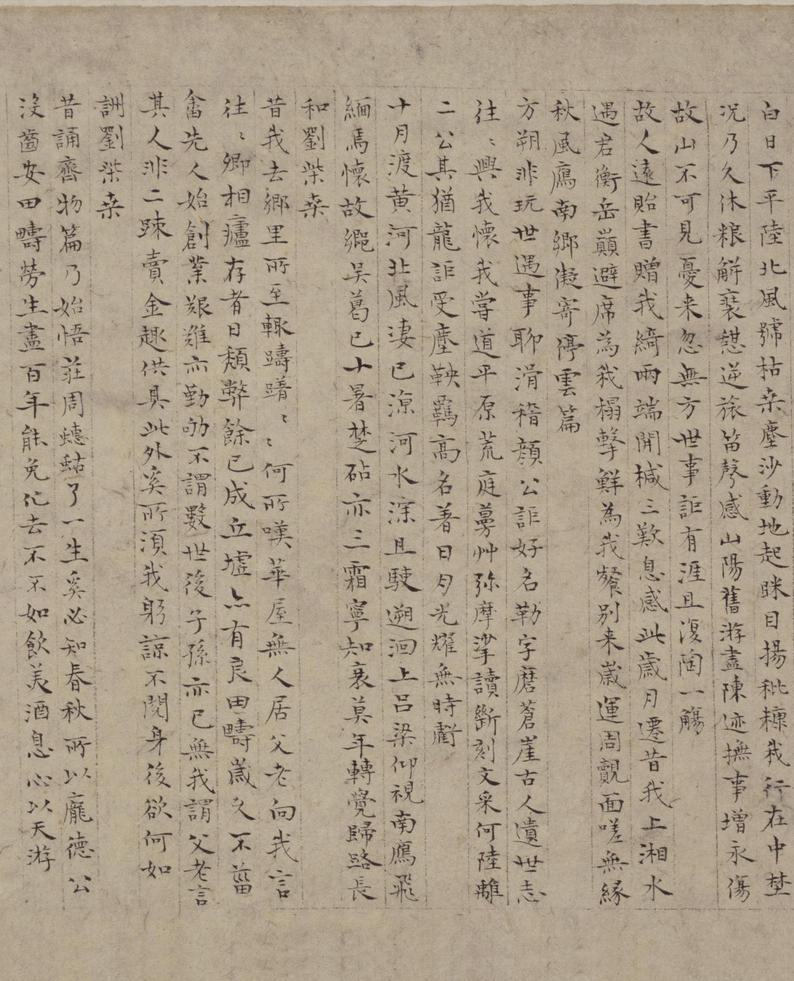 白日下平陸北風號枯桑塵沙動地起眯目揚秕糠我行在中埜
况乃久休粮解裘憇逆旅笛聲感山陽舊游盡陳迹撫事增永傷
故山不可見憂来忽無方世事詎有涯且復陶一觴
故人遠貽書贈我綺兩端開椷三歎息感此歲月遷昔我上湘水
遇君衡岳巔避席為我榻擊鮮為我餐别来歲運周覿面嗟無緣
秋風鴈南鄉凝寄停雲篇
方朔非玩世遇事聊滑稽顔公詎好名勒字磨蒼崖古人遺世志
往〻興我懷我嘗道平原荒庭蔓艸弥摩挲讀斷刻文采何陸離
二公其猶龍詎受塵鞅羈高名著日月光耀無時虧
十月渡黄河北風淒已涼河水深且駛遡洄上吕梁仰視南鴈飛
緬焉懷故鄉吴葛已十暑楚砧亦三霜寧知衰莫年轉覺歸路長
和劉柴桑
昔我去鄉里所至輒躊躇〻〻何所嘆華屋無人居父老向我言
往〻卿相廬存者日頹弊餘已成丘墟亦有良田疇歲久不葘
畬先人始創業艱難亦勤劬不謂數世後子孫亦已無我謂父老言
其人非二踈賣金趣供具此外奚所須我躬諒不閱身後欲何如
詶劉柴桑
昔誦齊物篇乃始悟荘周蟪蛄了一生奚必知春秋所以龐德公
没齒安田疇勞生盡百年能免化去不不如飲美酒息心以天游